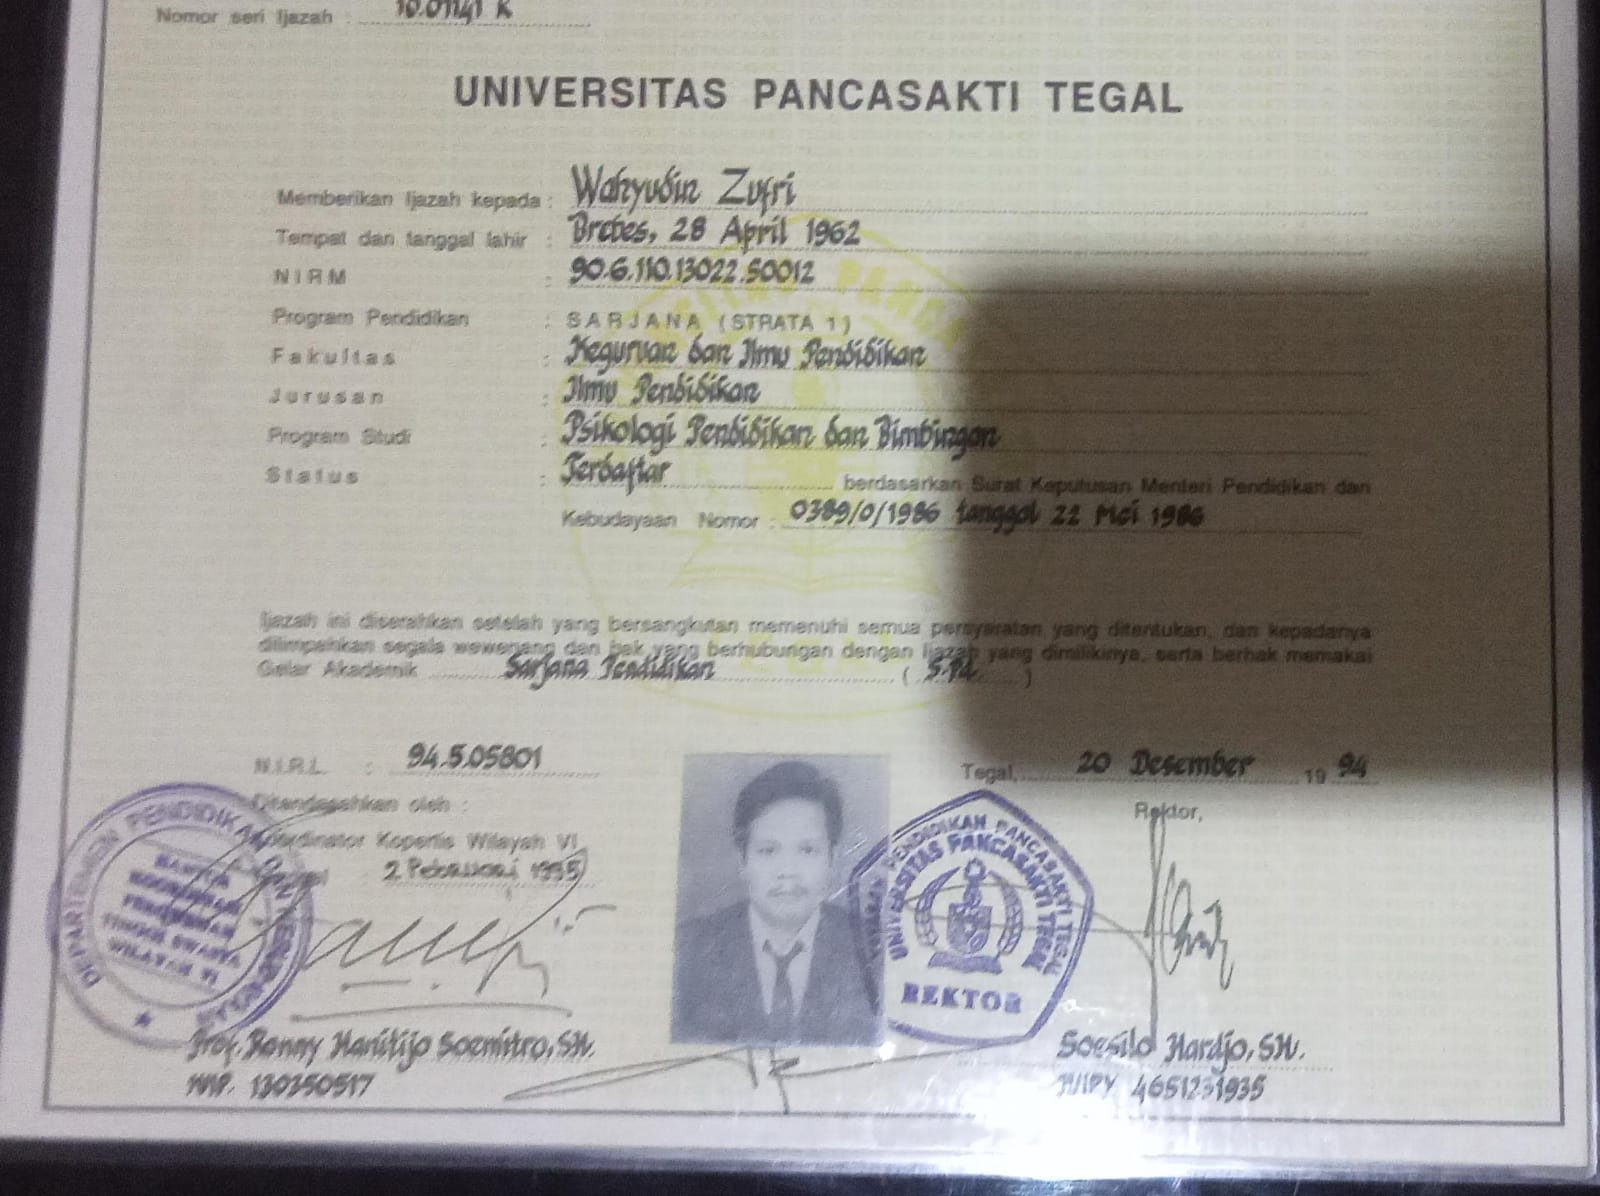 Nomor seri Ijazah : 10.01141 K
UNIVERSITAS PANCASAKTI TEGAL
Memberikan Ijazah kepada : Wahyudin Zufri
Tempat dan tanggal lahir : Brebes, 28 April 1962
NIRM : 90.6.110.13022.50012
Program Pendidikan : SARJANA (STRATA 1)
Fakultas : Keguruan dan Ilmu Pendidikan
Jurusan : Ilmu Pendidikan
Program Studi : Psikologi Pendidikan dan Bimbingan
Status : Terdaftar berdasarkan Surat Keputusan Menteri Pendidikan dan
Kebudayaan Nomor : 0389/0/1986 tanggal 22 Mei 1986
Ijazah ini diserahkan setelah yang bersangkutan memenuhi semua persyaratan yang ditentukan, dan kepadanya
dilimpahkan segala wewenang dan hak yang berhubungan dengan Ijazah yang dimilikinya, serta berhak memakai
Gelar Akademik Sarjana Pendidikan ( S.Pd. )
N.I.R.L. : 94.5.05801
Tegal, 20 Desember 19 94
Ditandasahkan oleh :
Rektor,
Koordinator Kopertis Wilayah VI
2 Pebruari 1995
DEPARTEMEN PENDIDIKAN
WILAYAH VI
PENDIDIKAN PANCASAKTI TEGAL
UNIVERSITAS PANCASAKTI TEGAL
REKTOR
Prof. Ronny Hanitijo Soemitro, SH.
NIP. 130350517
Soesilo Hardjo, SH.
NIPY 4651231935